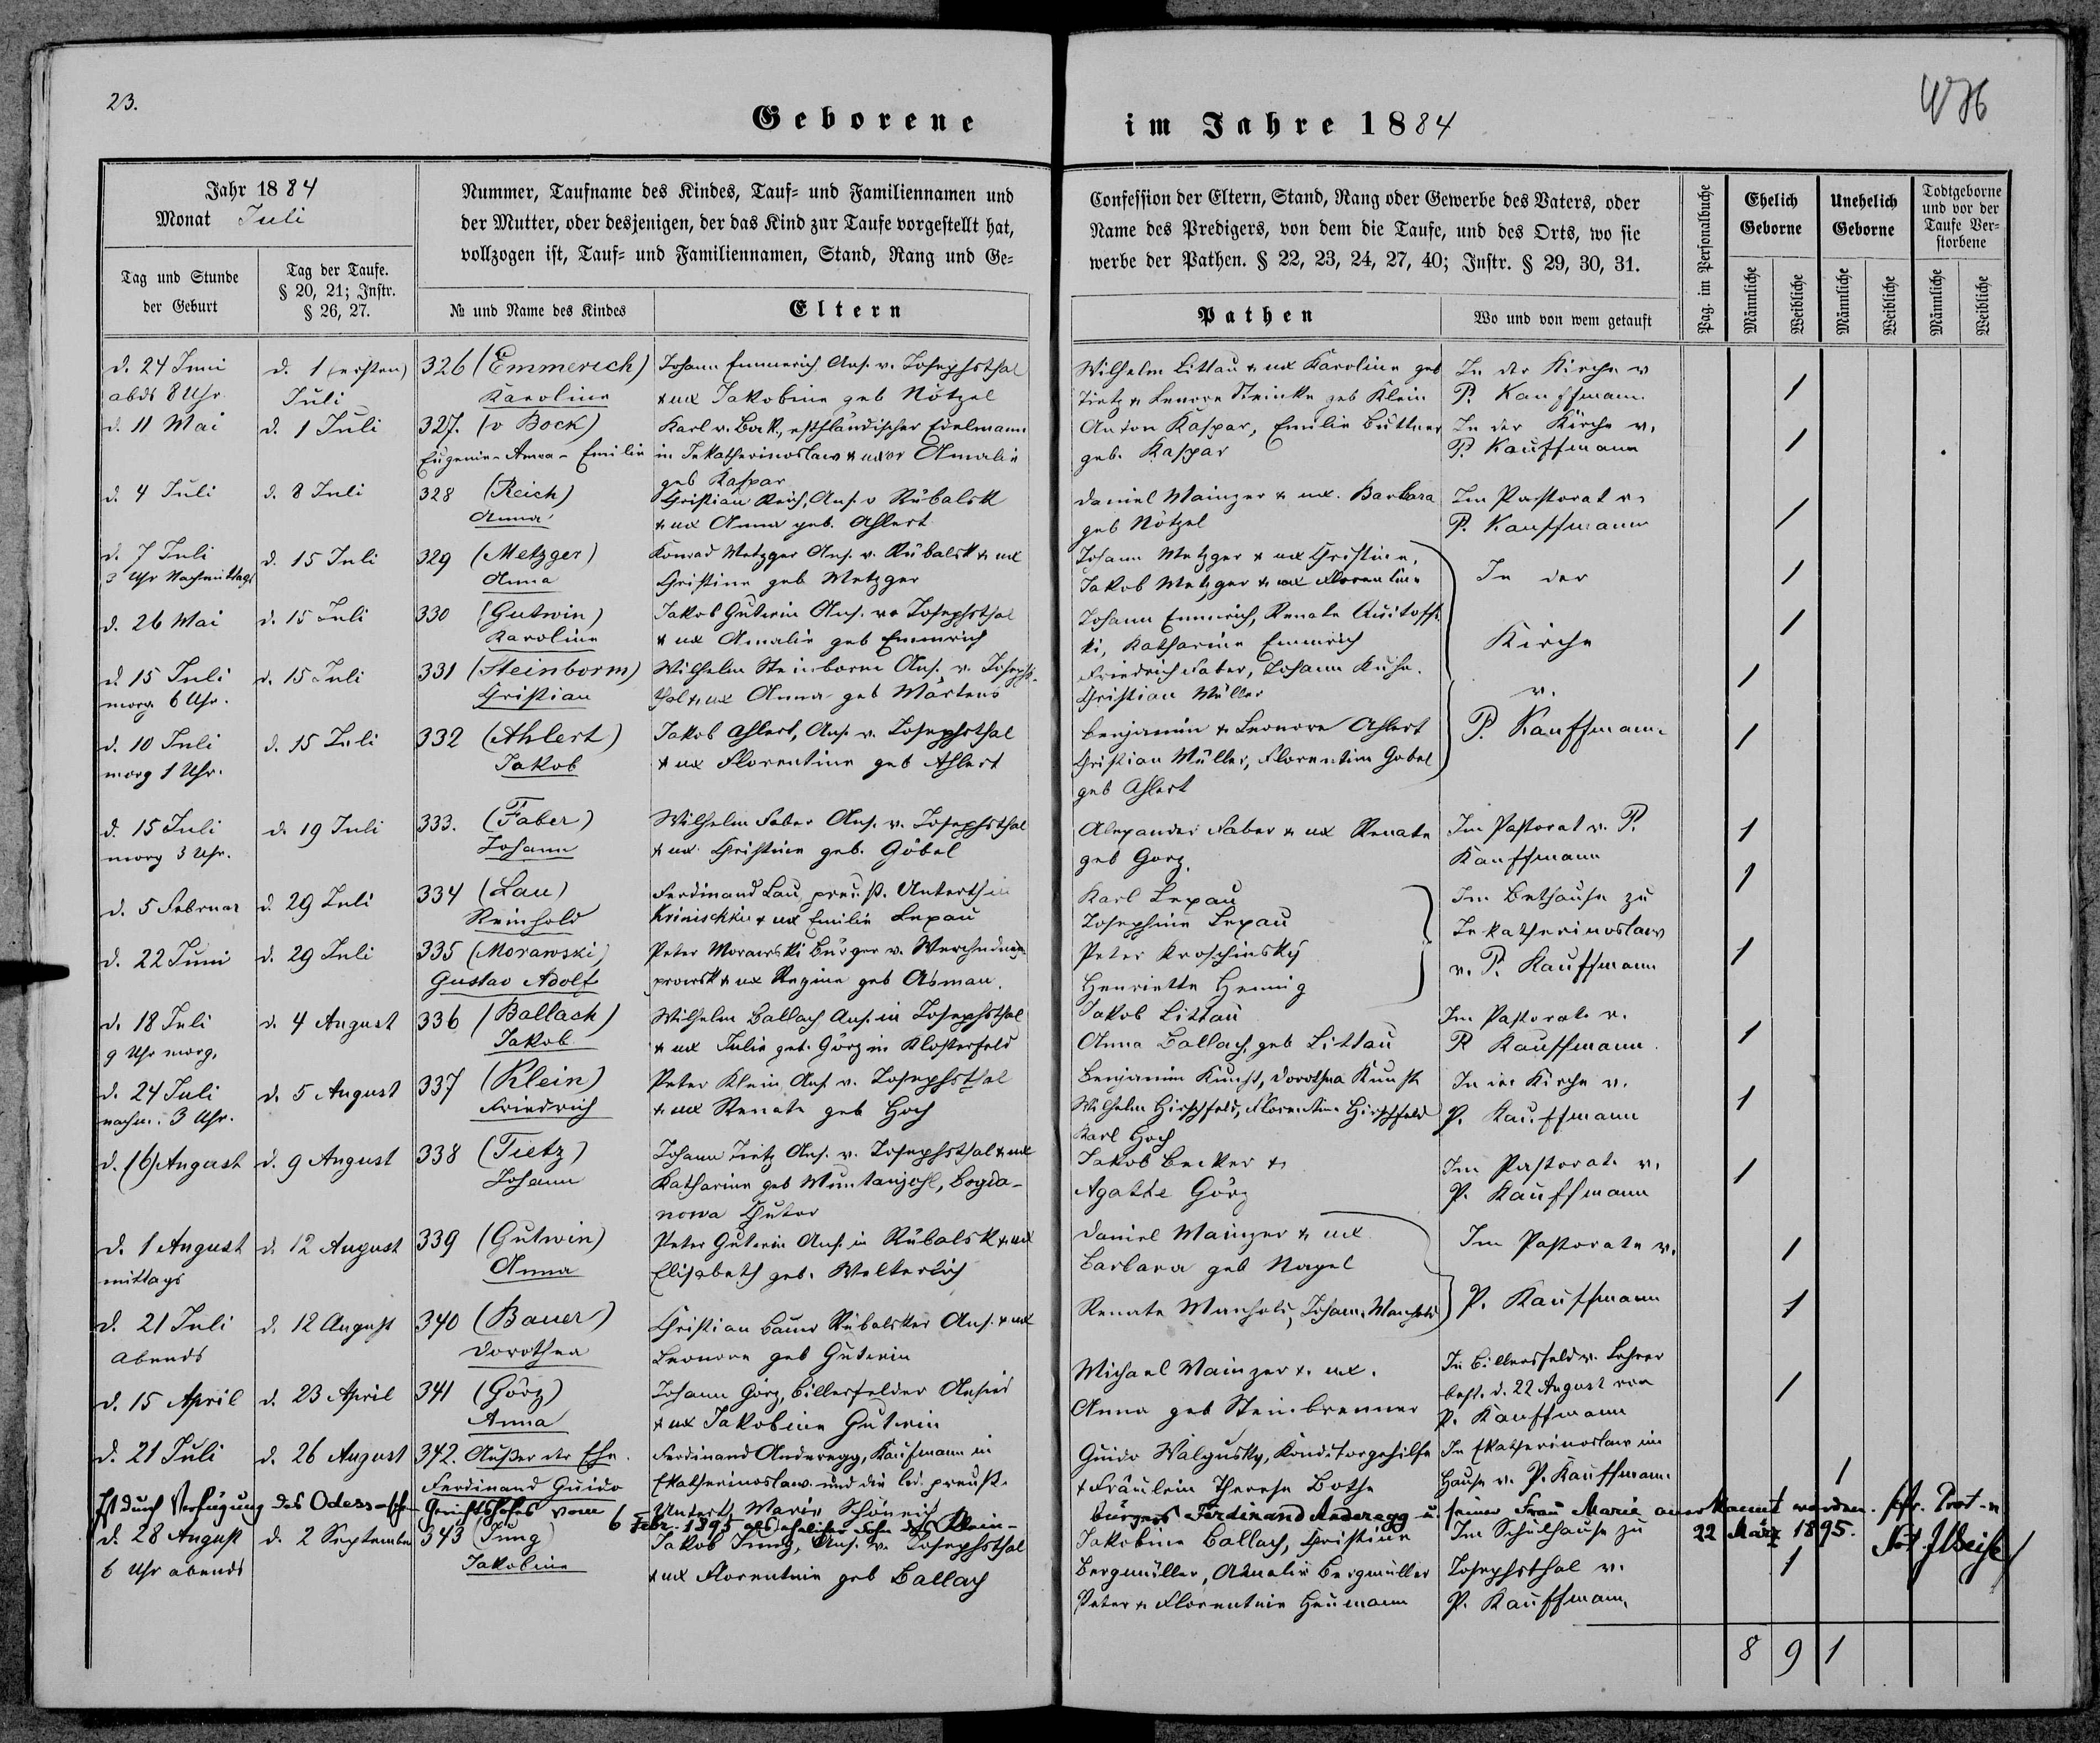 23.
476
Geborene im Jahre 1884
Jahr 1884
Monat Juli
Tag und Stunde der Geburt
Tag der Taufe. § 20, 21; Instr. § 26, 27.
Nummer, Taufname des Kindes, Tauf- und Familiennamen und
der Mutter, oder desjenigen, der das Kind zur Taufe vorgestellt hat,
vollzogen ist, Tauf- und Familiennamen, Stand, Rang und Ge-
№ und Name des Kindes
Eltern
Confession der Eltern, Stand, Rang oder Gewerbe des Vaters, oder
Name des Predigers, von dem die Taufe, und des Orts, wo sie
werbe der Pathen. § 22, 23, 24, 27, 40; Instr. § 29, 30, 31.
Pathen
Wo und von wem getauft
Pag. im Personalbuche
Ehelich Geborne
Unehelich Geborne
Todtgeborne und vor der Taufe Verstorbene
Männliche Weibliche Männliche Weibliche Männliche Weibliche
d. 24 Juni d. 1 (ersten) 326 (Emmerich) Johann Emmerich Ans. v. Josephsthal Wilhelm Littau & ux Karoline geb In der Kirche v
abds 8 Uhr. Juli Karoline & ux Jakobine geb Nötzel Tietz & Lenore Steinke geb Klein P. Kauffmann. 1
d. 11 Mai d. 1 Juli 327. (v Bock) Karl v. Bock, esthländischer Edelmann Anton Kaspar, Emilie Büttner In der Kirche v.
Eugenie-Anna-Emilie in Jekatherinoslaw & uxor Amalie geb. Kaspar P. Kauffmann 1
geb Kaspar
d. 4 Juli d. 8 Juli 328 (Reich) Christian Reich, Ans. v Rübalsk Daniel Mainzer & ux. Barbara Im Pastorat v.
Anna & ux Anna geb. Ahlert geb Nötzel P. Kauffmann 1
d. 7 Juli d. 15 Juli 329 (Metzger) Konrad Metzger Ans. v. Rübalsk & ux Johann Metzger & ux Christine,
3 Uhr Nachmittags Anna Christine geb Metzger Jakob Metzger & ux Florentine In der 1
d. 26 Mai d. 15 Juli 330 (Gutwin) Jakob Gutwin Ans. v. Josephsthal Johann Emmrich, Renate
Karoline & ux Amalie geb Emmrich ki, Katharine Emmrich Kirche 1
d. 15 Juli d. 15 Juli 331 (Steinborm) Wilhelm Steinborm Ans. v. Josephs- Friedrich Faber, Johann Kuhn.
morg. 6 Uhr. Christian thal & ux Anna geb Märtens Christian Müller v. 1
d. 10 Juli d. 15 Juli 332 (Ahlert) Jakob Ahlert, Ans. v. Josephsthal Benjamin & Leonore Ahlert P. Kauffmann.
morg 1 Uhr. Jakob & ux Florentine geb Ahlert Christian Müller, Florentine Gobel 1
geb Ahlert
d. 15 Juli d. 19 Juli 333. (Faber) Wilhelm Faber Ans. v. Josephsthal Alexander Faber & ux Renate Im Pastorat v. P.
morg 3 Uhr. Johann & ux. Christine geb. Göbel geb Gorz. Kauffmann 1
d. 5 Februar d. 29 Juli 334 (Lau) Ferdinand Lau, preuß. Unterth in Karl Lepau Im Bethause zu 1
Reinhold Krinischki & ux Emilie Lepau Josephine Lepau Jekatherinoslaw
d. 22 Juni d. 29 Juli 335 (Morawski) Peter Morawski Bürger v. Werchned Peter Kroschinsky v. P. Kauffmann 1
Gustav Adolf prowsk & ux Regine geb Asman. Henriette Hennig
d. 18 Juli d. 4 August 336 (Ballach) Wilhelm Ballach Ans. in Josephsthal Jakob Littau Im Pastorate v.
9 Uhr morg. Jakob & ux Julie geb. Görz in Klosterfeld Anna Ballach, geb Littau P. Kauffmann. 1
d. 24 Juli d. 5 August 337 (Klein) Peter Klein Ans. v. Josephsthal Benjamin Kunst, Dorothea Kunst In der Kirche v.
nachm. 3 Uhr. Friedrich & ux Renate geb Hoch Wilhelm Hirschfeld, Florentine Hirschfeld P. Kauffmann 1
Karl Hoch
d. (6) August d. 9 August 338 (Tietz) Johann Tietz Ans. v. Josephsthal & ux Jakob Becker & Im Pastorate v. 1
Johann Katharine geb Muntanjohl, Bogda- Agathe Görz P. Kauffmann
nowa Chutor
d. 1 August d. 12 August 339 (Gutwin) Peter Gutwin Ans. in Rübalsk & ux Daniel Mainzer & ux Im Pastorate v.
mittags Anna Elisabeth geb. Welterlich Barbara geb Nagel 1
d. 21 Juli d. 12 August 340 (Bauer) Christian Bauer Rübalsker Ans. & ux Renate Manhols, Johann Manhols P. Kauffmann 1
Abends Dorothea Leonore geb Gutwin
d. 15 April d. 23 April 341 (Görz) Johann Görz, Billersfelder Ansied Michael Mainzer & ux. In Billersfeld v. Lehrer
Anna & ux Jakobine Gutwin Anna geb Steinbrenner best. d. 22 August von 1
P. Kauffmann
d. 21 Juli d. 26 August 342. Außer der Ehe. Ferdinand Anderegg, Kaufmann in Guido Walgusky, Konditorgehilfe In Ekatherinoslaw im
Ferdinand Guido Ekatherinoslaw und die led. preuß. & Fräulein Therese Bothe Hause v. P. Kauffmann. 1
Unterth Marie Schöneich
Ist durch Verfügung des Odess-schen Gerichtshofes vom 6 Febr. 1895 als ehelicher Sohn des Klein-bürgers Ferdinand Anderegg u. seiner Frau Marie anerkannt worden.
22 März 1895.
d. 28 August d. 2 September 343 (Jung) Jakob Jung, Ans. v. Josephsthal Jakobine Ballach, Christine Im Schulhause zu
6 Uhr abends Jakobine & ux Florentine geb Ballach Bergmüller, Amalie Bergmüller Josephsthal v. 1
Peter & Florentine Heumann P. Kauffmann,
8 9 1